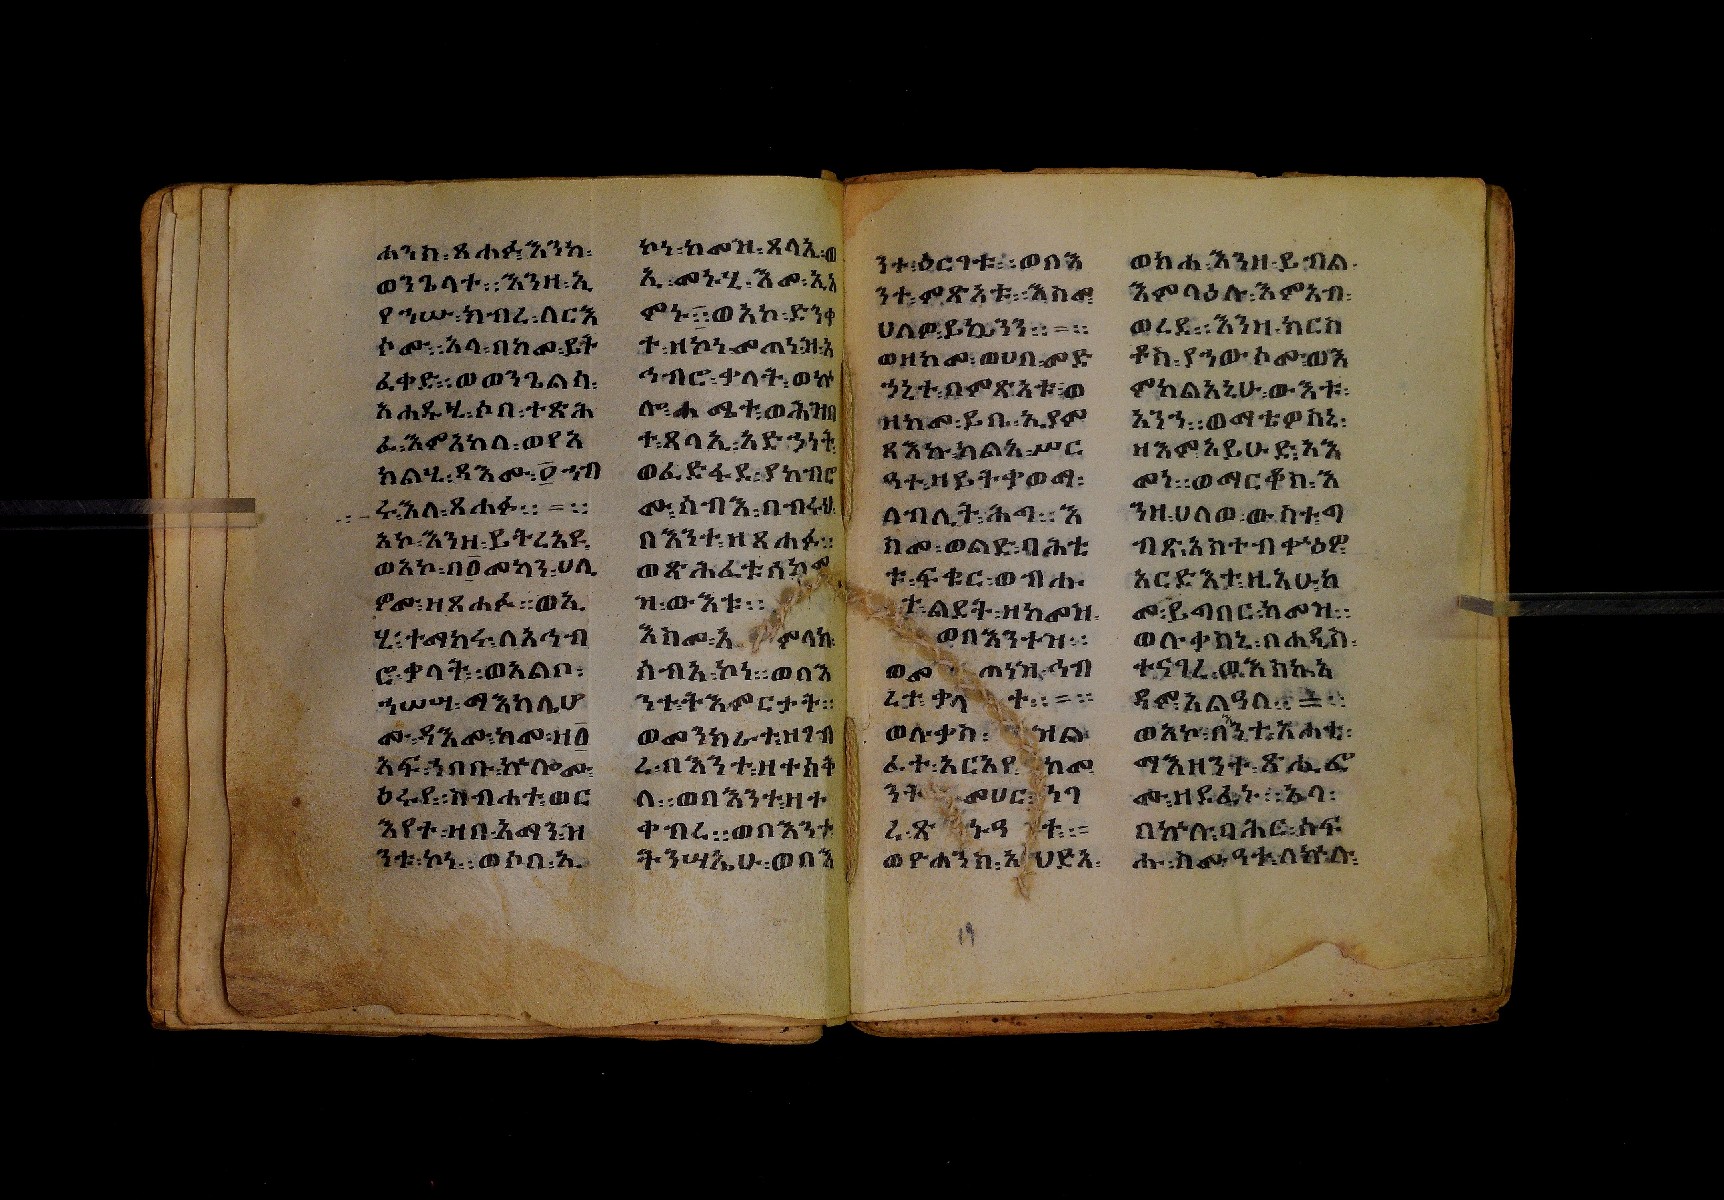 ሐንስ፡ጸሐፉ፡እንከ፡
ወንጌላተ፡፡እንዘ፡ኢ
የኀሡ፡ክብረ፡ለርእ
ሶሙ፡፡አላ፡በከመ፡ይት
ፈቀድ፡፡ወወንጌልሰ፡
አሐዱሂ፡ሶበ፡ተጽሕ
ፈ፡እምአከለ፡ወየአ
ክልሂ፡ዳእሙ፡፬ኀብ
ሩ፡እለ፡ጸሐፉ፡፡=፡፡
አኮ፡እንዘ፡ይትረአዩ
ወአኮ፡በ፩መካን፡ሀሊ
ዎሙ፡ዘጸሐፉ፡፡ወኢ
ሂ፡ተማከሩ፡ለአኅብ
ሮ፡ቃላት፡፡ወአልቦ፡
ኀሠሣ፡ማእከሌሆ
ሙ፡ዳእሙ፡ከመ፡ዘ፩
አፍ፡ነበቡ፡ኵሎሙ፡
ዕሩየ፡፡ስብሐተ፡ወር
እየተ፡ዘበ፡አማን፡ዝ
ንቱ፡ኮነ፡፡ወሶበ፡ኢ
ኮነ፡ከመዝ፡ጸላኢ፡ወ
ኢ፡መኑሂ፡እመ፡ኢአ
ምኑ፡፡ወአኮ፡ድንቀ
ት፡ዘኮነ፡መጠነዝ፡አ
ኅብሮ፡ቃላት፡ወኵ
ሎ፡ሐሜተ፡ወሕዝበ
ተ፡ጸላኢ፡አድኃነት፡
ወፈድፋደ፡ያከብሮ
ሙ፡ስብእ፡በብሩህ፡
በእንተ፡ዘጸሐፉ፡፡
ወጽሕፈቱሰ፡ከመ
ዝ፡ውእቱ፡፡
እስመ፡አምላክ፡
ሰብአ፡ኮነ፡፡ወበእ
ንተ፡ትእምርታት፡፡
ወመንክራተ፡ዘገብ
ረ፡በእንተ፡ዘተሰቅ
ለ፡፡ወበእንተ፡ዘተ
ቀብረ፡፡ወበእንተ
ትንሣኤሁ፡ወበእ
ንተ፡ዕርገቱ፡፡ወበእ
ንተ፡ምጽአቱ፡፡እስመ
ሀለወ፡ይኴንን፡፡=፡፡
ወዘከመ፡ወሀበ፡መድ
ኃኒተ፡በምጽአቱ፡ወ
ዘከመ፡ይቤ፡ኢያም
ጻእኩ፡ካልአ፡ሥር
ዓተ፡ዘይትቃወማ፡
ለብሊት፡ሕግ፡፡እ
ስመ፡ወልድ፡ባሕቲ
ቱ፡ፍቁር፡ወብሑ
ት፡ልደት፡ዘከመዝ፡
ወበእንተዝ፡፡
ወመጠነዝ፡ኀብ
ረተ፡ቃላት፡፡=፡፡
ወሉቃስ፡ዝል
ፈተ፡አርአየ፡ከመ
ወዮሐንስ፡አህድአ፡
ወከሐ፡እንዘ፡ይብል፡
እምላዕሉ፡እምአብ፡
ወረደ፡፡እንዘ፡ክርስ
ቶስ፡ያኀውሶሙ፡ወእ
ምከልአኒሁ፡ውእቱ፡
አንን፡፡ወማቴዎስኒ፡
ዘእምአይሁድ፡እእ
መነ፡፡ወማርቆስ፡እ
ንዘ፡ሀለወ፡ውስተ፡ግ
ብጽ፡አስተብቍዕዎ
አርድእት፡ዚአሁ፡ከ
መ፡ይግበር፡ከመዝ፡፡
ወሉቃስኒ፡በሐዲስ፡
ተናገረ፡ወእስኩአ
ዳም፡አልዓለ፡፡=፡፡
ወአኮ፡በንተ፡አሐቲ፡
ማእዘንት፡ጽሒፎ
ሙ፡ዘይፈኑ፡፡አባ፡
በኵሉ፡ባሕር፡ሰፍ
ሑ፡ከመ፡ዓቱ፡ለኵሉ፡
19